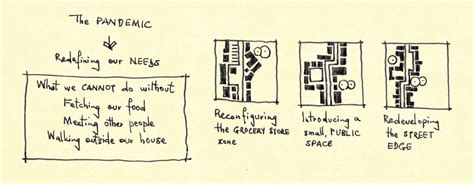 The PANDEMIC
Redefining our NEEDS
What we CANNOT do without
Fetching our food
Meeting other people
Walking outside our house
Reconfiguring
the GROCERY STORE
zone
Introducing a
small, PUBLIC
SPACE
Redeveloping
the STREET
EDGE